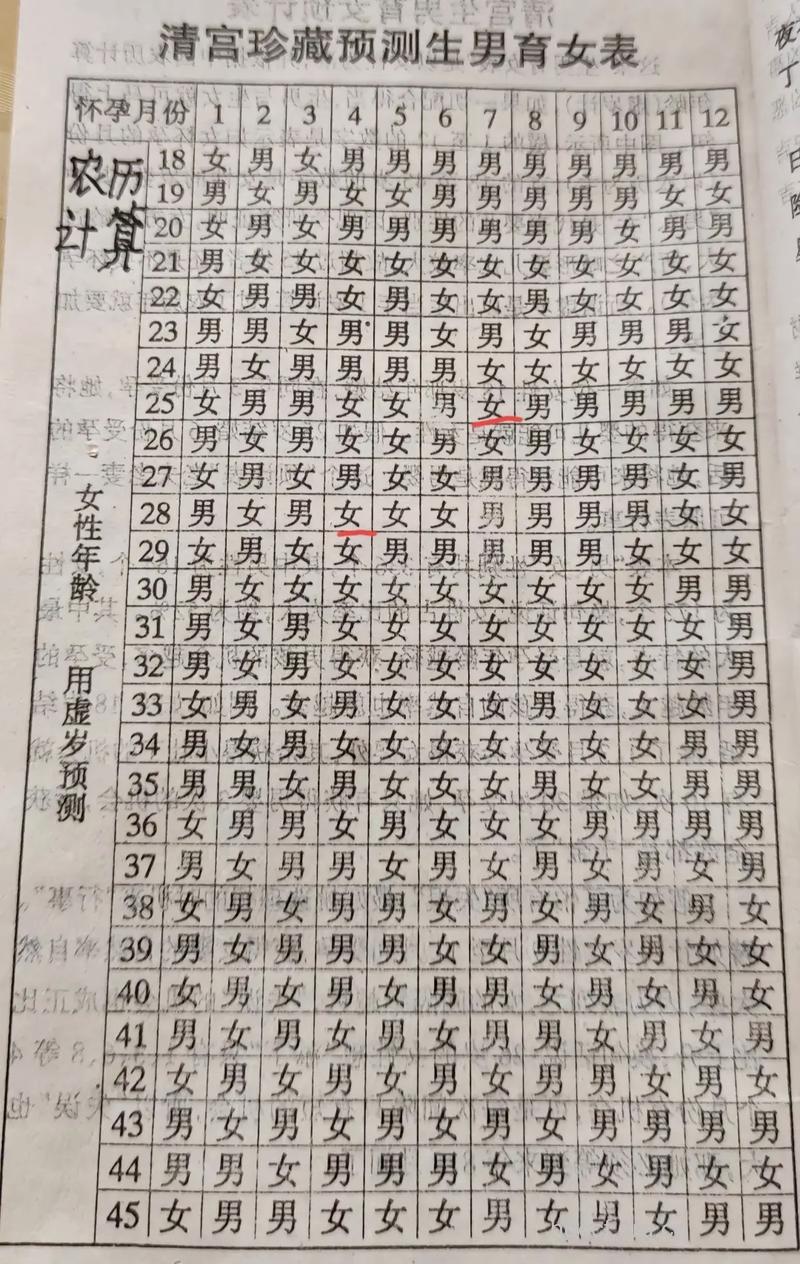 清宫珍藏预测生男育女表
怀孕月份 1 2 3 4 5 6 7 8 9 10 11 12
农历计算
女性年龄 用虚岁预测
18 女 男 女 男 男 男 男 男 男 男 男 男
19 男 女 男 女 女 男 男 男 男 男 女 女
20 女 男 女 男 男 男 男 男 男 女 男 男
21 男 女 女 女 女 女 女 女 女 女 女 女
22 女 男 男 女 男 女 女 男 女 女 女 女
23 男 男 女 男 男 女 男 女 男 男 男 女
24 男 女 男 男 男 男 女 女 女 女 女 女
25 女 男 男 女 女 男 女 男 男 男 男 男
26 男 女 男 女 女 男 女 男 女 女 女 女
27 女 男 女 男 女 女 男 男 男 男 女 男
28 男 女 男 女 女 女 男 男 男 男 女 女
29 女 男 女 女 男 男 男 男 男 女 女 女
30 男 女 女 女 女 女 女 女 女 女 男 男
31 男 女 男 女 女 女 女 女 女 女 女 男
32 男 女 男 女 女 女 女 女 女 女 女 男
33 女 男 女 男 女 女 女 男 女 女 女 男
34 男 女 男 女 女 女 女 女 女 女 男 男
35 男 男 女 男 女 女 女 男 女 女 男 男
36 女 男 男 女 男 女 女 女 男 男 男 男
37 男 女 男 男 女 男 女 男 女 男 女 男
38 女 男 女 男 男 女 男 女 男 女 男 女
39 男 女 男 男 男 女 女 男 女 男 女 女
40 女 男 女 男 女 男 男 女 男 女 男 女
41 男 女 男 女 男 女 男 男 女 男 女 男
42 女 男 女 男 女 男 女 男 男 女 男 女
43 男 女 男 女 男 女 男 女 男 男 男 男
44 男 男 女 男 男 男 女 男 女 男 女 女
45 女 男 男 女 女 女 男 女 男 女 男 男